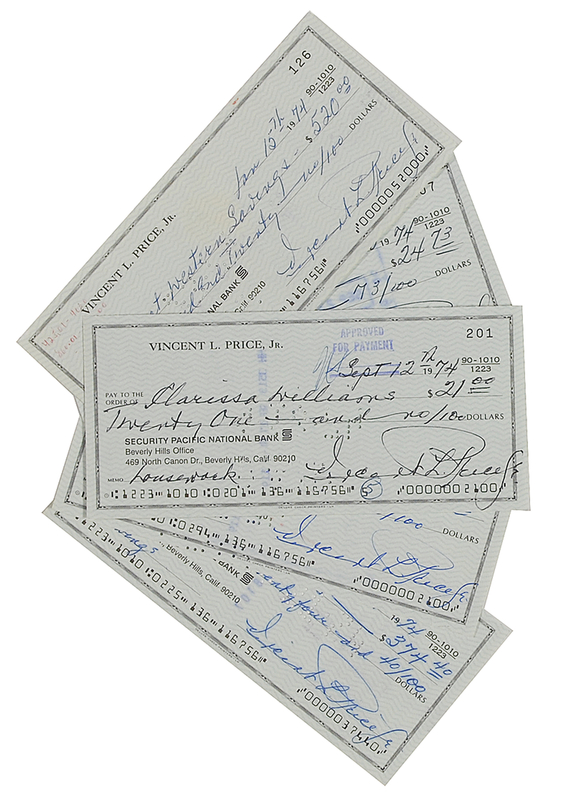 126
90-1010
1223
Jan 12th 1974
$520 00
Western Savings
and Twenty no/100 DOLLARS
VINCENT L. PRICE, JR.
NAL BANK
Calif. 90210
Vincent L Price Jr
116756⑈ ⑈0000052000⑈
07
90-1010
1223
1974
$24 73
73/100 DOLLARS
VINCENT L. PRICE, JR.
201
APPROVED
FOR PAYMENT
Sept 12th 1974
90-1010
1223
PAY TO THE
ORDER OF Clarissa Williams $21 00
Twenty One and no/100 DOLLARS
SECURITY PACIFIC NATIONAL BANK
Beverly Hills Office
469 North Canon Dr., Beverly Hills, Calif. 90210
MEMO housework Vincent L Price Jr
⑆1223⑉1010⑆0201⑉ 136⑈116756⑈ ⑈0000002100⑈
/100 DOLLARS
Vincent L Price Jr
1010⑆0294⑉ 136⑈116756⑈ ⑈0000002100⑈
1974
90-1010
1223
$374 40
four and 40/100 DOLLARS
BANK
Beverly Hills, Calif. 90210
ings
Vincent L Price Jr
1223⑉1010⑆0225⑉ 136⑈116756⑈ ⑈0000037440⑈